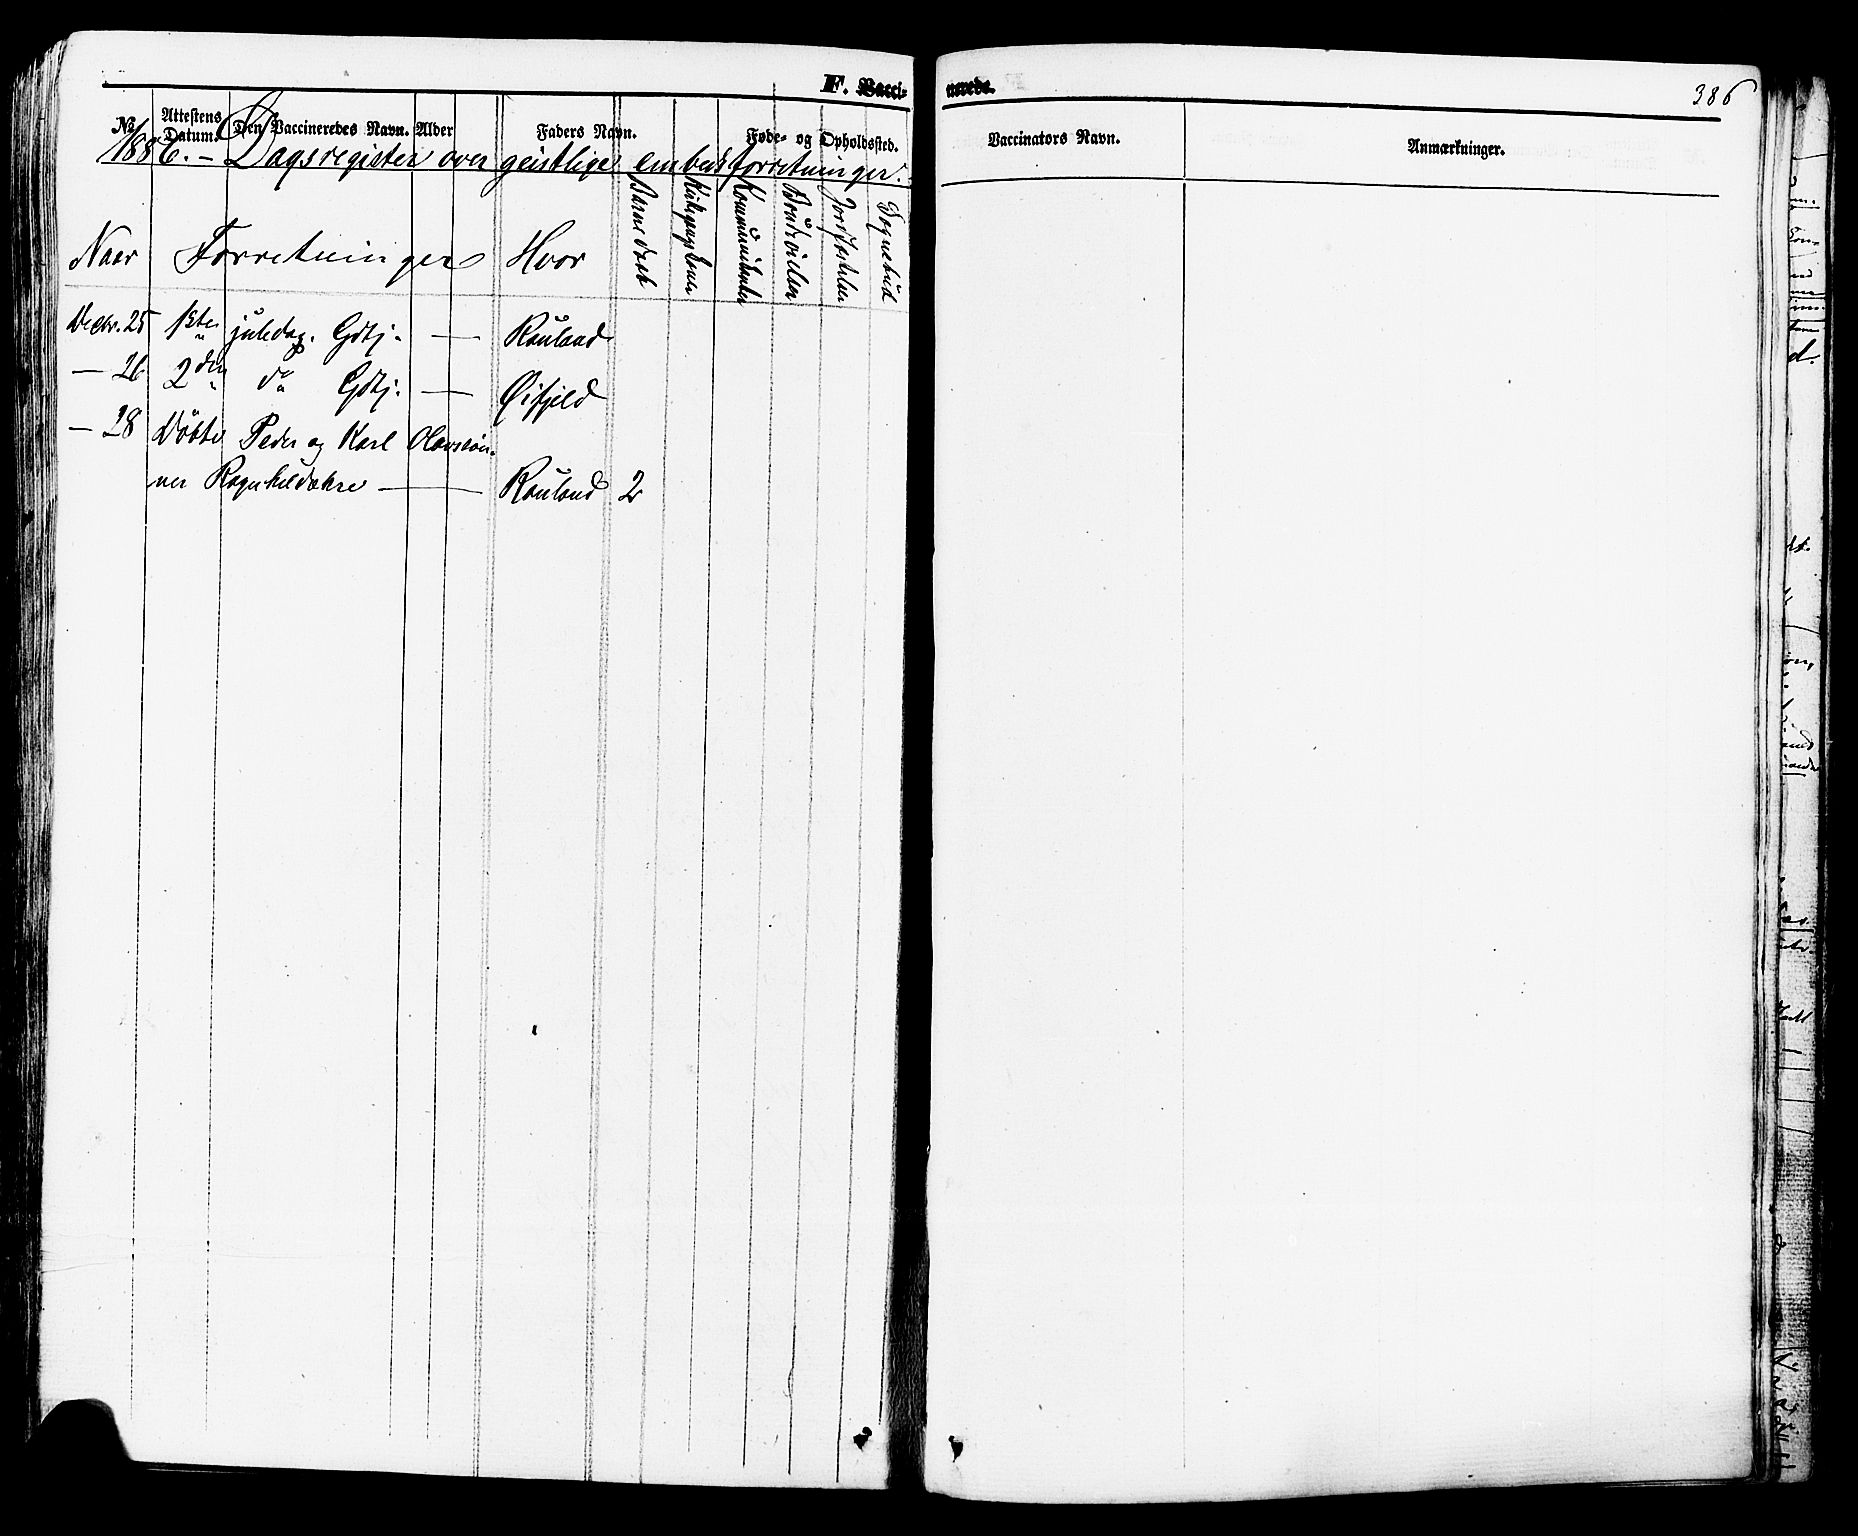 F. Vacci-
nerede.
386
No.
Attestens Datum.
Den Vaccineredes Navn.
Alder
Faders Navn.
Føde- og Opholdssted.
Vaccinators Navn.
Anmærkninger.
1886. – Dagsregister over geistlige embedsforretninger.
Naar Forretninger Hvor Barnedaab Kirkegangskoner Kommunikanter Brudevielser Jordfæstelser Sognebud
Decbr. 25 1ste juledag. Gdtj. — Rauland
— 26 2den do Gdtj. — Øifjeld
— 28 Døbte Peder og Karl Olavssøn-
ner — Rauland 2